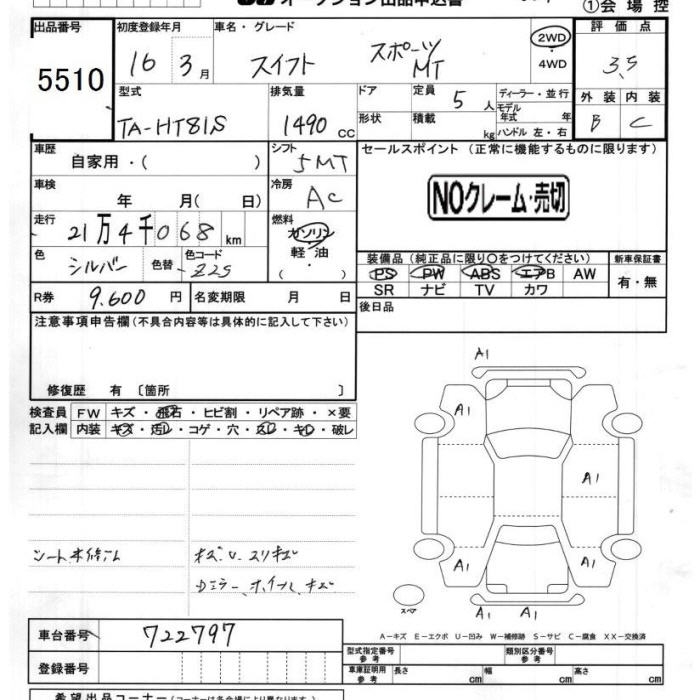 オークション出品申込書
①会場控
出品番号 初度登録年月 車名・グレード 評価点
5510 16 3月 スイフト スポーツ MT 2WD ・ 4WD 3.5
型式 排気量 ドア 定員 5人 ディーラー・並行 外装 内装
TA-HT81S 1490 CC 形状 積載 kg モデル年式 年 ハンドル 左・右 B C
車歴 自家用・( ) シフト 5MT セールスポイント (正常に機能するものに限ります)
車検 年 月( 日) 冷房 AC NOクレーム・売切
走行 21万4千068 km 燃料 ガソリン 軽油 ・( )
色 シルバー 色替 色コード Z2S 装備品 (純正品に限り○をつけてください) 新車保証書
PS PW ABS エアB AW 有・無
R券 9.600 円 名変期限 月 日 SR ナビ TV カワ
注意事項申告欄 (不具合内容等は具体的に記入して下さい) 後日品
修復歴 有 〔箇所 〕
検査員 FW キズ・飛石・ヒビ割・リペア跡・×要
記入欄 内装 キズ・汚レ・コゲ・穴・スレ・キレ・破レ
A1
A1
A1
A1 A1
A1 A1
スペア
シート
A-キズ E-エクボ U-凹み W-補修跡 S-サビ C-腐食 XX-交換済
車台番号 722797 型式指定番号 参考 類別区分番号 参考
登録番号 車庫証明用 参考 長さ cm 幅 cm 高さ cm
希望出品コーナー (コーナーは各会場により異なります)